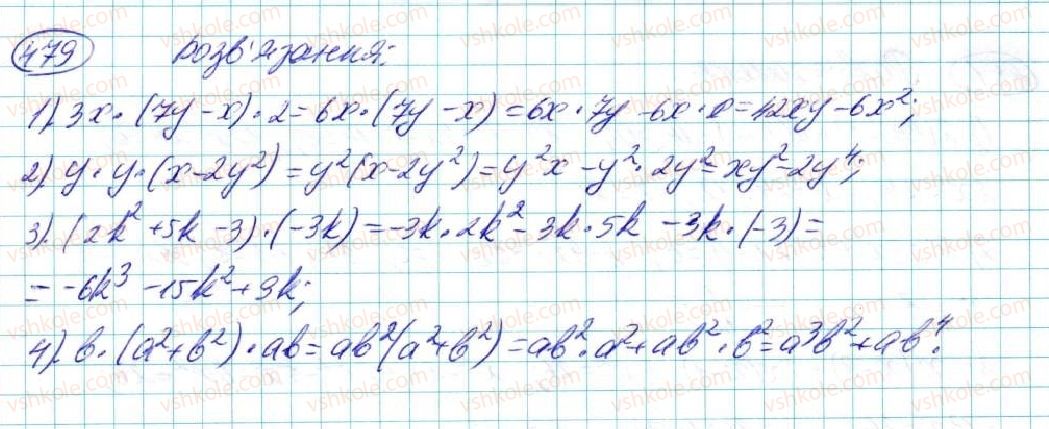 479 Розв'язання:
1). 3x · (7y – x) · 2 = 6x · (7y – x) = 6x · 7y – 6x · x = 42xy – 6x²;
2). y · y · (x – 2y²) = y²(x – 2y²) = y²x – y² · 2y² = xy² – 2y⁴;
3). (2k² + 5k – 3) · (–3k) = –3k · 2k² – 3k · 5k – 3k · (–3) =
= –6k³ – 15k² + 9k;
4). b · (a² + b²) · ab = ab²(a² + b²) = ab² · a² + ab² · b² = a³b² + ab⁴.
vshkole.com